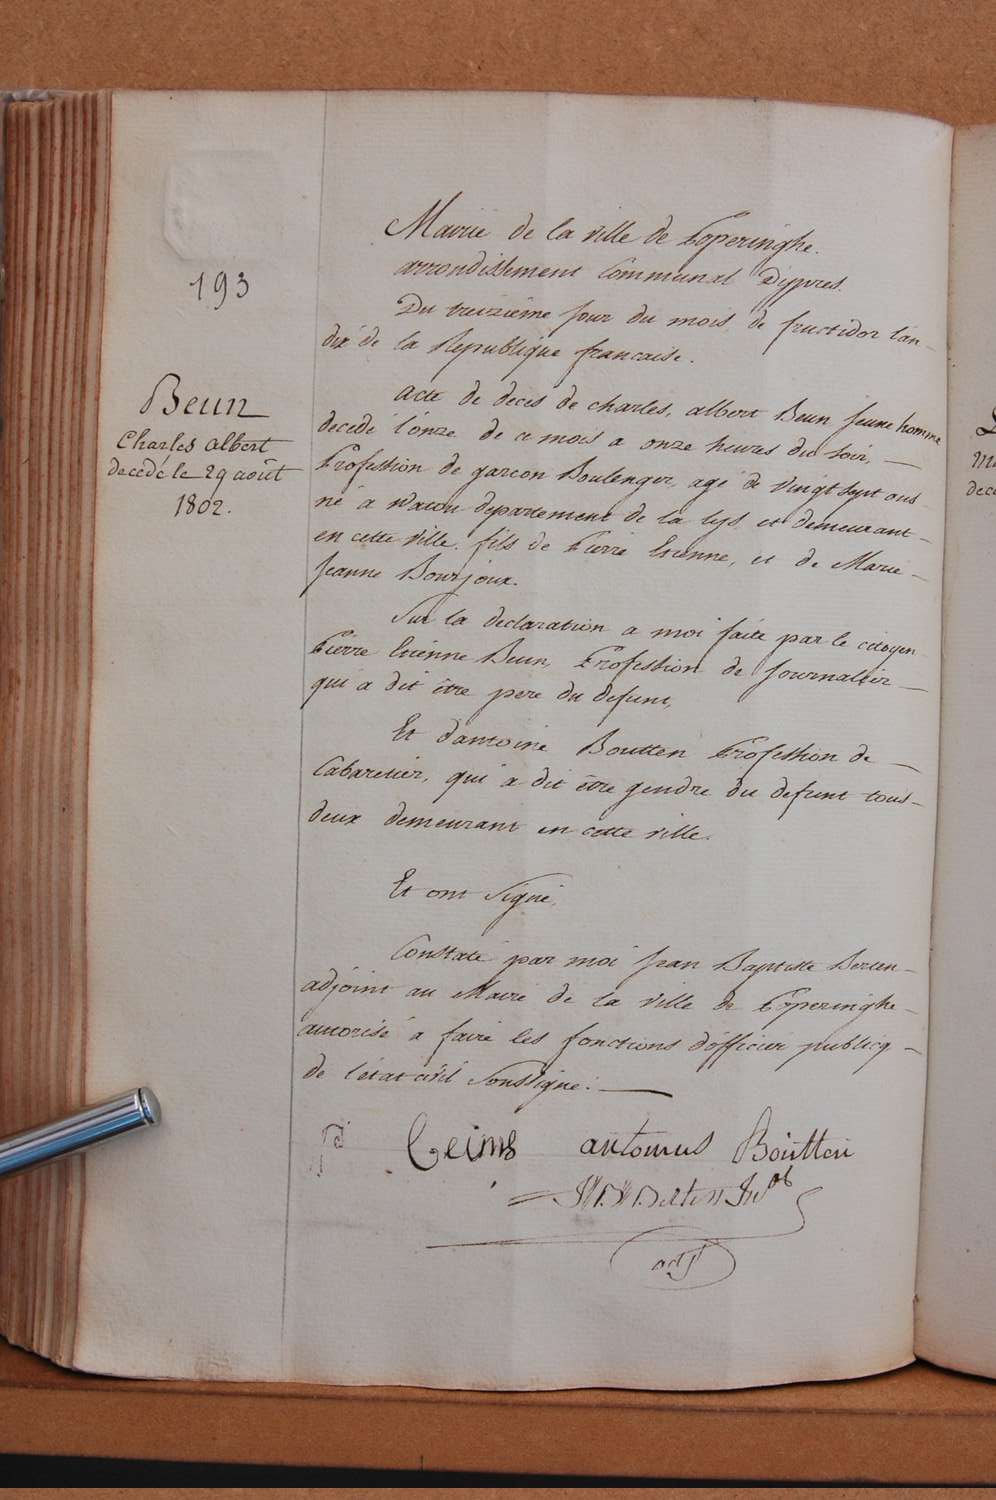 193
Beun
Charles albert
decedé le 29 août
1802.
Mairie de la ville de Poperinghe.
arrondissement Communal D'ypres.
Du treizième jour du mois de fructidor l'an
dix de la Republique francaise.
Acte de deces de charles, albert Beun jeune homme
decedé l'onze de ce mois a onze heures du soir,
Profession de garcon Boulenger, agé de vingt sept ans
né à Watou département de la lys, et demeurant
en cette ville. fils de Pierre Etienne, et de Marie
Jeanne Bourjoux.
Sur la declaration a moi faite par le citoyen
Pierre Etienne Beun, Profession de Journalier
qui a dit être pere du defunt,
Et d'antoine Boutten Profession de
Cabaretier, qui a dit être gendre du defunt tous
deux demeurant en cette ville.
Et ont Signé,
Constaté par moi jean Baptiste Berten
adjoint au Maire de la ville de Poperinghe
autorisé a faire les fonctions d'officier publicq
de l'état civil Soussigné:
antonius Boutten
adjt